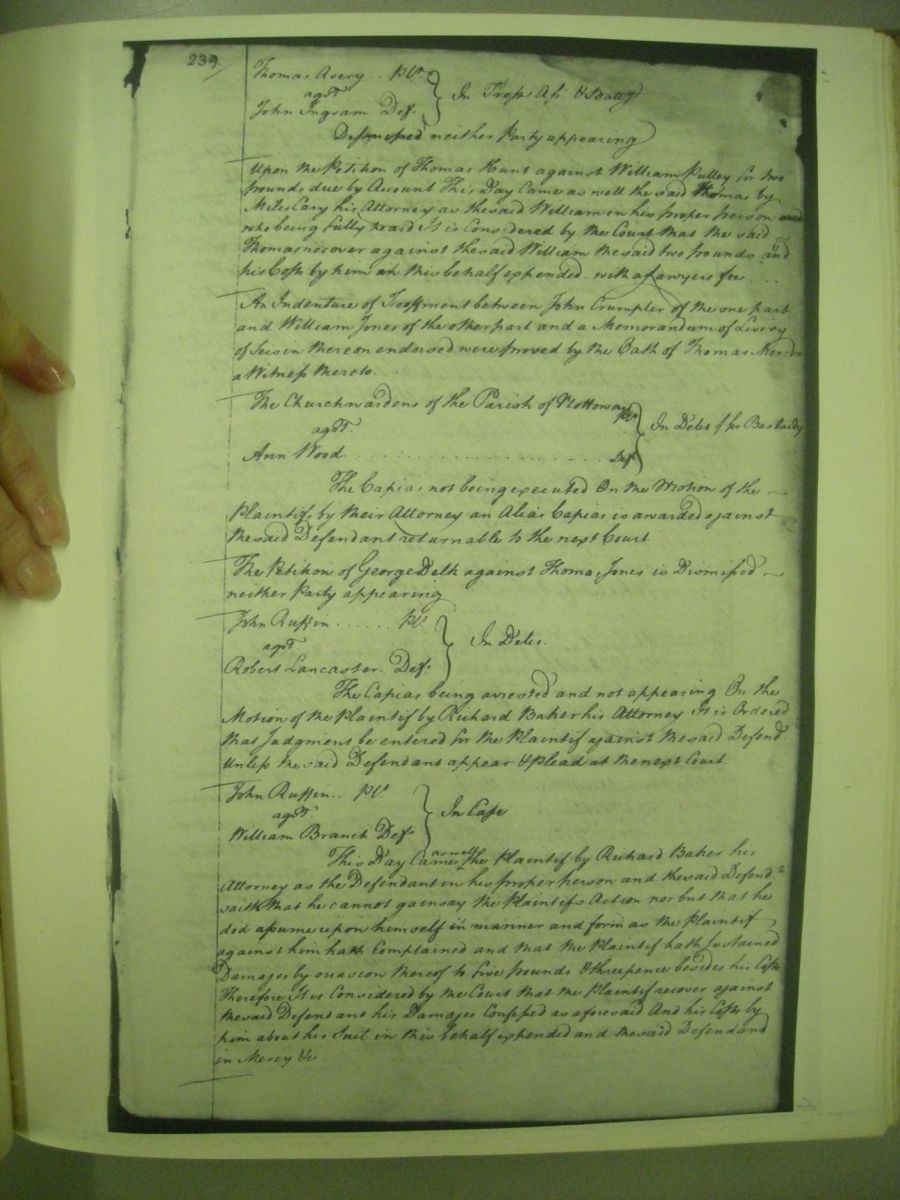 239/
Thomas Avery .. Plt
agst
John Ingram Deft
In Tresps. Ass. & Batty
Dismissed neither Party appearing
Upon the Petition of Thomas Hunt against William Pulley for two
pounds due by Account This Day Came as well the said Thomas by
Miles Cary his Attorney as the said William in his proper person and
who being fully heard It is Considered by the Court that the said
Thomas recover against the said William the said two pounds and
his Costs by him in this behalf expended with a Lawyers fee ...
An Indenture of Feoffment between John Crumpler of the one part
and William Jones of the other part and a Memorandum of Livery
of Seisin thereon endorsed were proved by the Oath of Thomas
a Witness thereto.
The Churchwardens of the Parish of Nottoway Plts
agst
Ann Wood .................... Deft
In Debt for Bastardy
The Capias not being executed On the Motion of the
Plaintifs by their Attorney an Alias Capias is awarded against
the said Defendant returnable to the next Court
The Petition of George Delk against Thomas Jones is Dismissed
neither Party appearing
John Ruffin ...... Plt.
agst
Robert Lancaster. Deft
In Debt.
The Capias being arrested and not appearing On the
Motion of the Plaintif by Richard Baker his Attorney It is Ordered
that Judgment be entered for the Plaintif against the said Defend
Unless the said Defendant appear & plead at the next Court
John Ruffin .. Plt.
agst
William Branch Deft
In Case
This Day Came as well the Plaintif by Richard Baker his
Attorney as the Defendant in his proper person and the said Defendt
saith that he cannot gainsay the Plaintifs Action nor but that he
did assume upon himself in manner and form as the Plaintif
against him hath Complained and that the Plaintif hath Sustained
Damages by occasion thereof to five pounds & threepence besides his Costs
Therefore It is Considered by the Court that the Plaintif recover against
the said Defendant his Damages Confessed as aforesaid And his Costs by
him about his Suit in this behalf expended and the said Defendant
in Mercy &c.